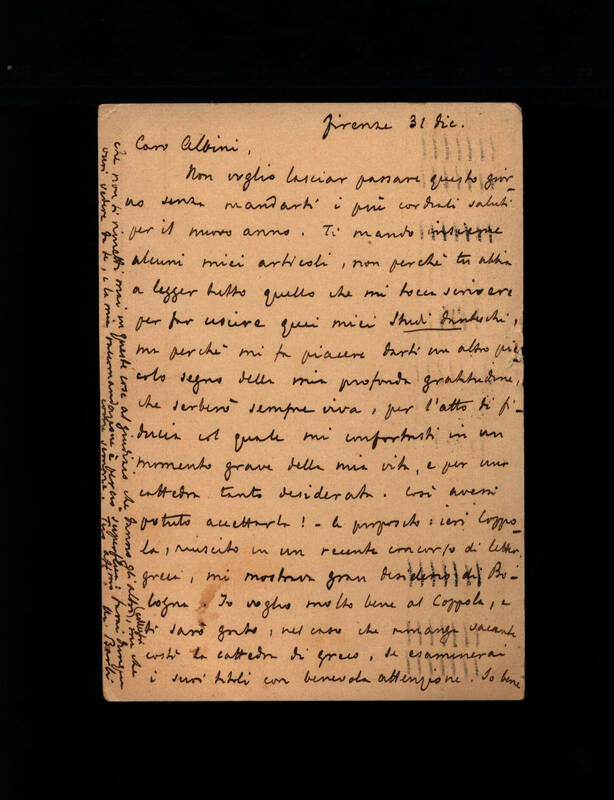 Firenze 31 dic.
Caro Albini,
Non voglio lasciar passare questo gior-
no senza mandarti i più cordiali saluti
per il nuovo anno. Ti mando insieme
alcuni miei articoli, non perchè tu abbia
a legger tutto quello che mi tocca scrivere
per far uscire quei miei Studi danteschi,
ma perchè mi fa piacere darti un altro pic-
colo segno della mia profonda gratitudine,
che serberò sempre viva, per l'atto di fi-
ducia col quale mi confortasti in un
momento grave della mia vita, e per una
cattedra tanto desiderata. Così avessi
potuto accettarla! - A proposito: ieri Coppo-
la, riuscito in un recente concorso di letter.
greca, mi mostrava gran desiderio di Bo-
logna. Io voglio molto bene al Coppola, e
ti sarò grato, nel caso che rimanga vacante
costì la cattedra di greco, se esaminerai
i suoi titoli con benevola attenzione. So bene
che non ti rimetti mai in queste cose al giudizio che danno gli altri, ma che
vuoi vedere da te, e la mia raccomandazione è perciò superflua:
tuo M. Barbi